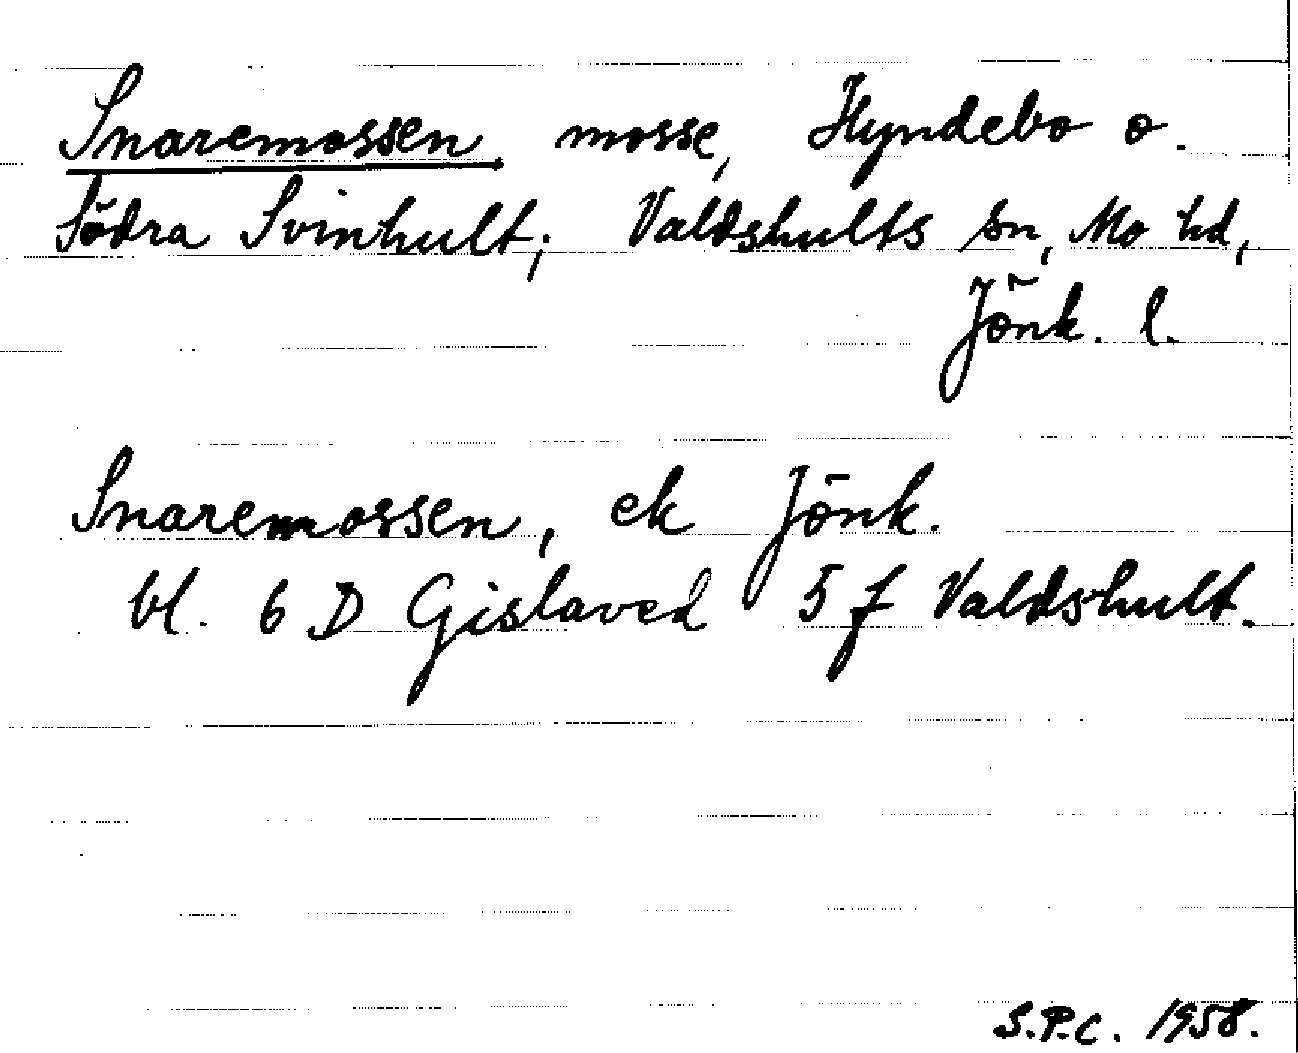 Snaremossen, mosse, Hyndebo o.
Södra Svinhult; Valdshults sn, Mo hd,
Jönk. l.
Snaremossen, ek Jönk.
bl. 6 D Gislaved 5 f Valdshult.
S.P.C. 1958.